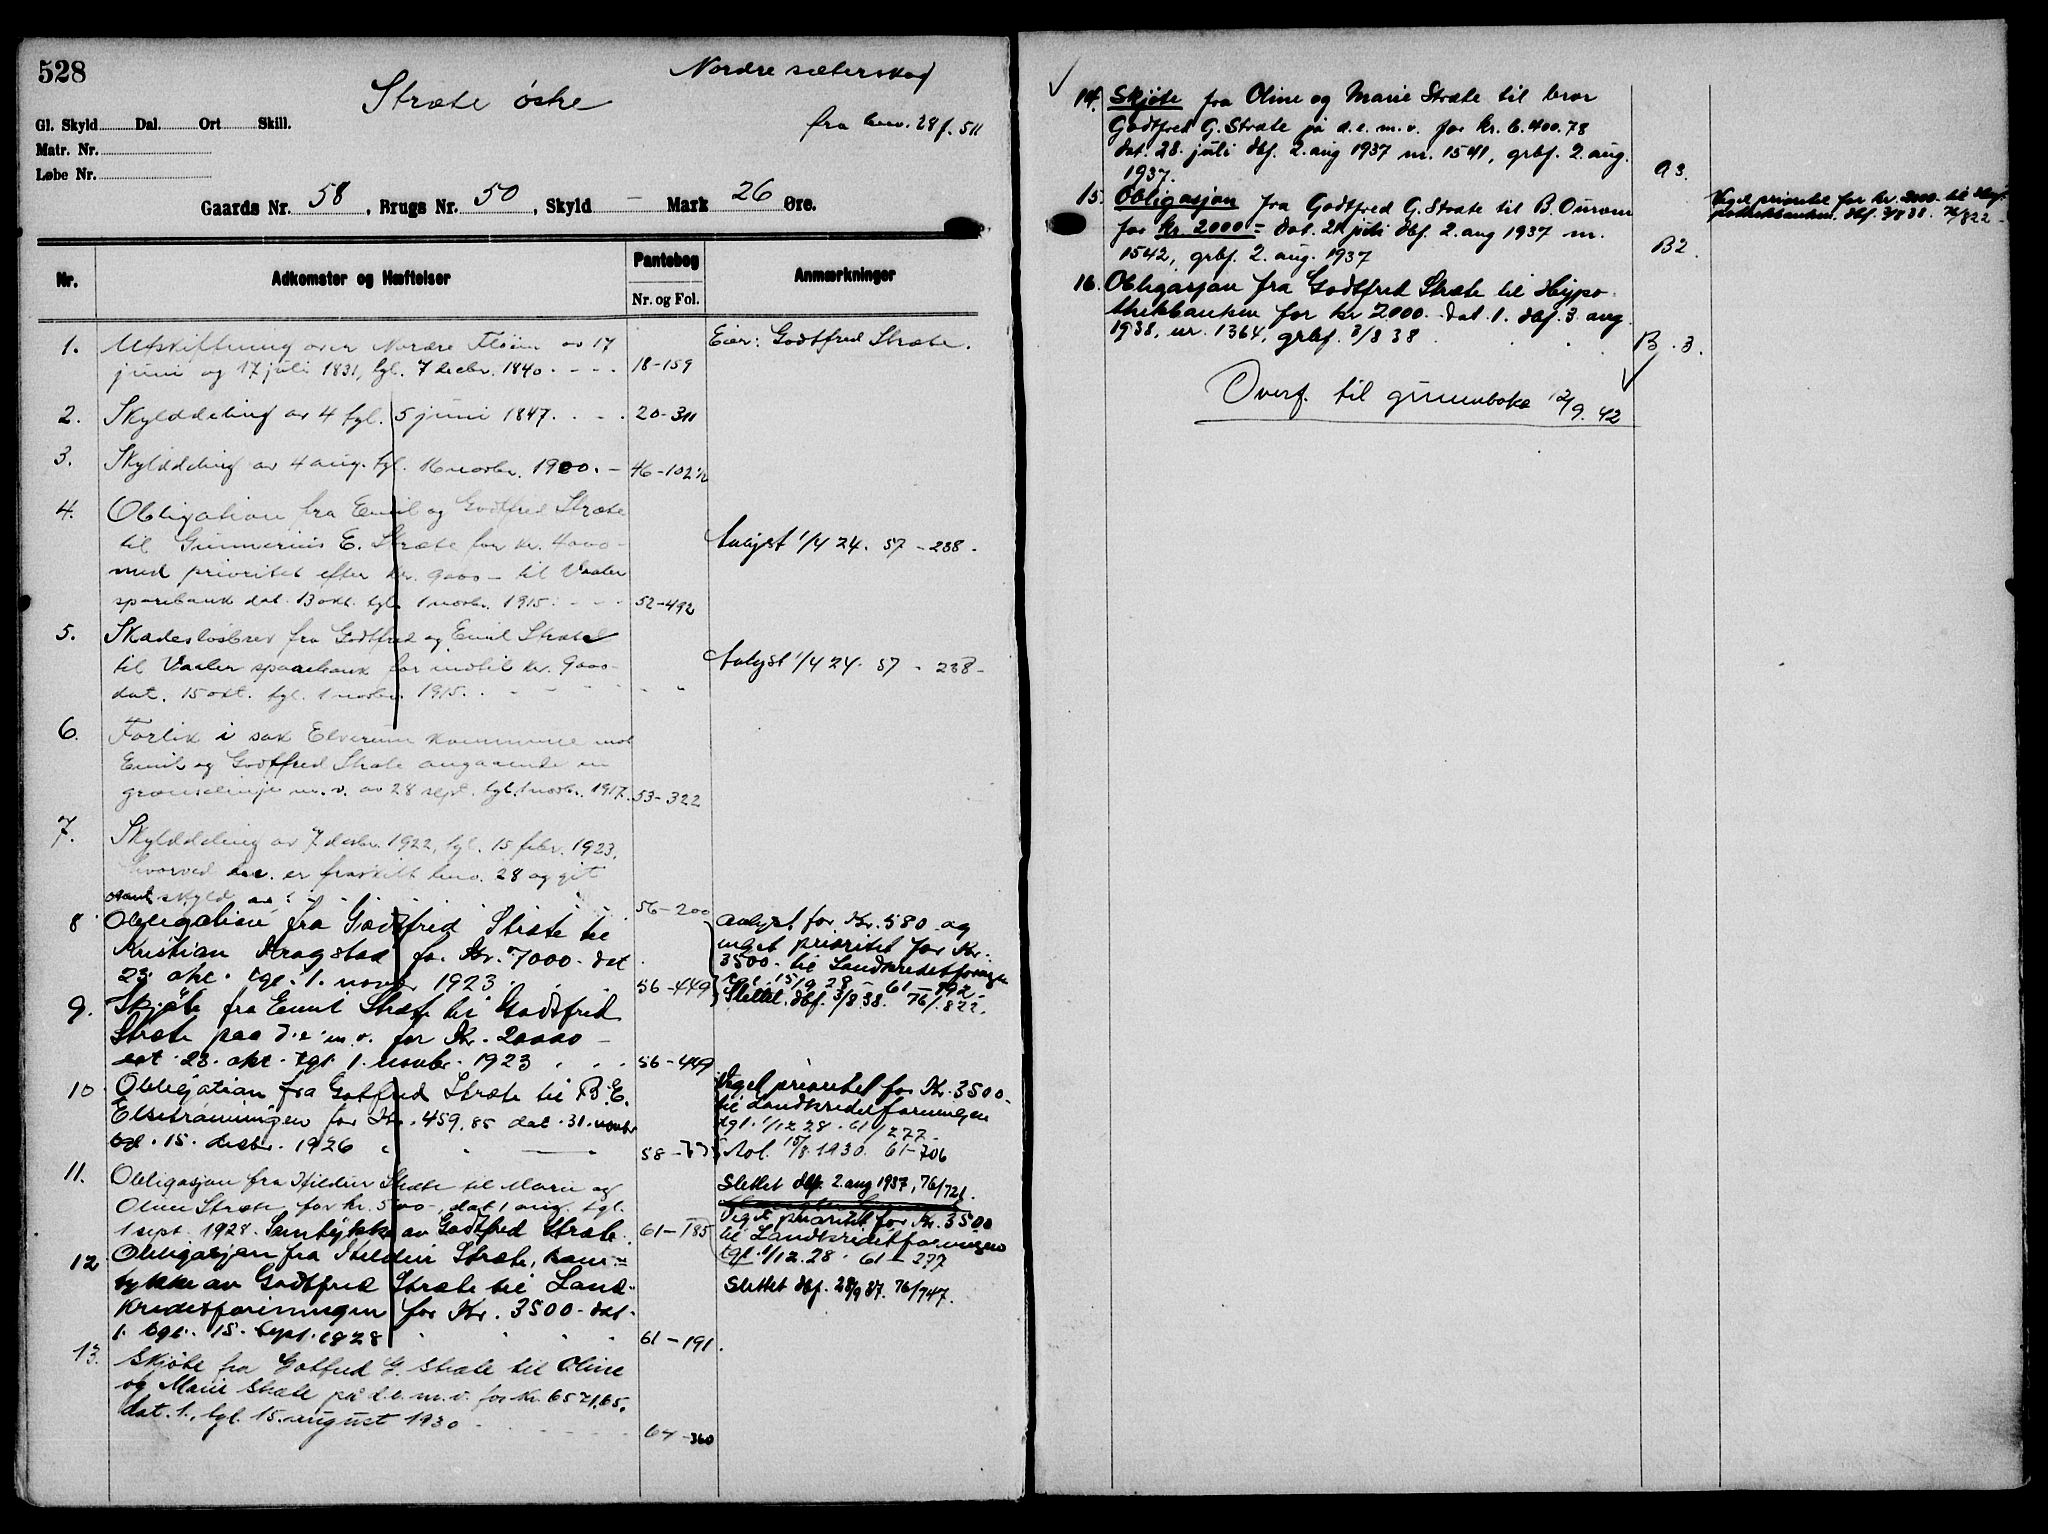 528
Stræte østre
Nordre sæterskog
fra bnr. 28 f. 511
Gl. Skyld Dal. Ort Skill.
Matr. Nr.
Løbe Nr.
Gaards Nr. 58, Brugs Nr. 50, Skyld — Mark 26 Øre.
Nr.
Adkomster og Hæftelser
Pantebog
Nr. og Fol.
Anmærkninger
1. Utskiftning over Nordre Fløien av 17
juni og 17 juli 1831, tgl. 7 decbr. 1840. 18-159
Eier: Godtfred Stræte.
2. Skylddeling av 4 tgl. 5 juni 1847. 20-311
3. Skylddeling av 4 aug. tgl. 16 novbr. 1900. — 46-102
4. Obligation fra Emil og Godtfred Stræte
til Gunnerius E. Stræte for kr. 4000-
med prioritet efter kr. 9000 - til Vaaler
sparebank dat. 13 okt. tgl. 1 novbr. 1915. 52-492
Avlyst 1/4 24. 57 - 238.
5. Skadesløsbrev fra Godtfred og Emil Stræte
til Vaaler sparebank for indtil kr. 9000-
dat. 15 okt. tgl. 1 novbr. 1915. - "
Avlyst 1/4 24. 57 - 238-
6. Forlik i sak Elverum kommune mot
Emil og Godtfred Stræte angaaende en
grænselinje m. v. av 28 sept. tgl. 1 novbr. 1917. 53-322
7. Skylddeling av 7 desbr. 1922, tgl. 15 febr. 1923,
hvorved her. er fraskilt bnr. 28 og git
skyld 56-200
8 Obligation fra Godtfred Stræte til
Kristian Kragstad for Kr. 7000- dat
23. okt. tgl. 1. novbr 1923. 56-449
Avlyst for Kr. 580 og
veget prioritet for Kr.
3500- til Landkreditforeningen
tgl. 15/9 28 - 61-192-
Slettet, dbf. 3/8 38. 76/822.
9. Skjøte fra Emil Stræte til Godtfred
Stræte paa d. e. m. v. for Kr. 20000 -
dat. 23. okt. tgl. 1. novbr. 1923 56-449
10 Obligation fra Gotfred Stræte til B. E.
for Kr. 459,85 dat. 31. novbr
tgl. 15. desbr. 1926 58-
Veget prioritet for Kr. 3500-
til Landkreditforeningen
tgl. 1/12 28. 61/277-
Avl. 15/8 1930. 61-706
11. Obligasjon fra Hildur Stræte til Marie og
Oline Stræte for kr. 500-, dat 1 aug. tgl.
1 sept. 1928. Samtykke av Godtfred Stræte. 61-185
Slettet dbf. 2. aug 1937, 76/721.
Veget prioritet for Kr. 3500
til Landkreditforeningen
tgl. 1/12. 28. 61-277
12 Obligasjon fra Hildur Stræte, sam-
tykke av Godtfred Stræte til Land-
kreditforeningen for Kr. 3500- dat.
1. tgl. 15. sept. 1928 61-191.
Slettet dbf. 28/9 37. 76/747.
13. Skjøte fra Gotfred G. Stræte til Oline
og Marie Stræte på d. e. m. v. for kr. 6571,65.
dat. 1., tgl. 15. august 1930 64-360
14. Skjøte fra Oline og Marie Stræte til bror
Godtfred G. Stræte på d. e. m. v. for kr. 6.400.78
dat. 28. juli dbf. 2. aug 1937 nr. 1541, grbf. 2. aug.
1937. A 3.
15. Obligasjon fra Godtfred G. Stræte til B. Ourom
for kr. 2000.= dat. 28 juli dbf. 2. aug 1937 nr.
1542, grbf. 2. aug. 1937 B 2.
Veget prioritet for kr. 2000.- til Hypo-
thekbanken, dbf. 3/8 38. 76/822-
16. Obligasjon fra Godtfred Stræte til Hypo-
thekbanken for kr 2000.- dat. 1. dbf. 3. aug.
1938, nr. 1364, grbf. 3/8 38 B. 3.
Overf. til grunnboka 12/9. 42